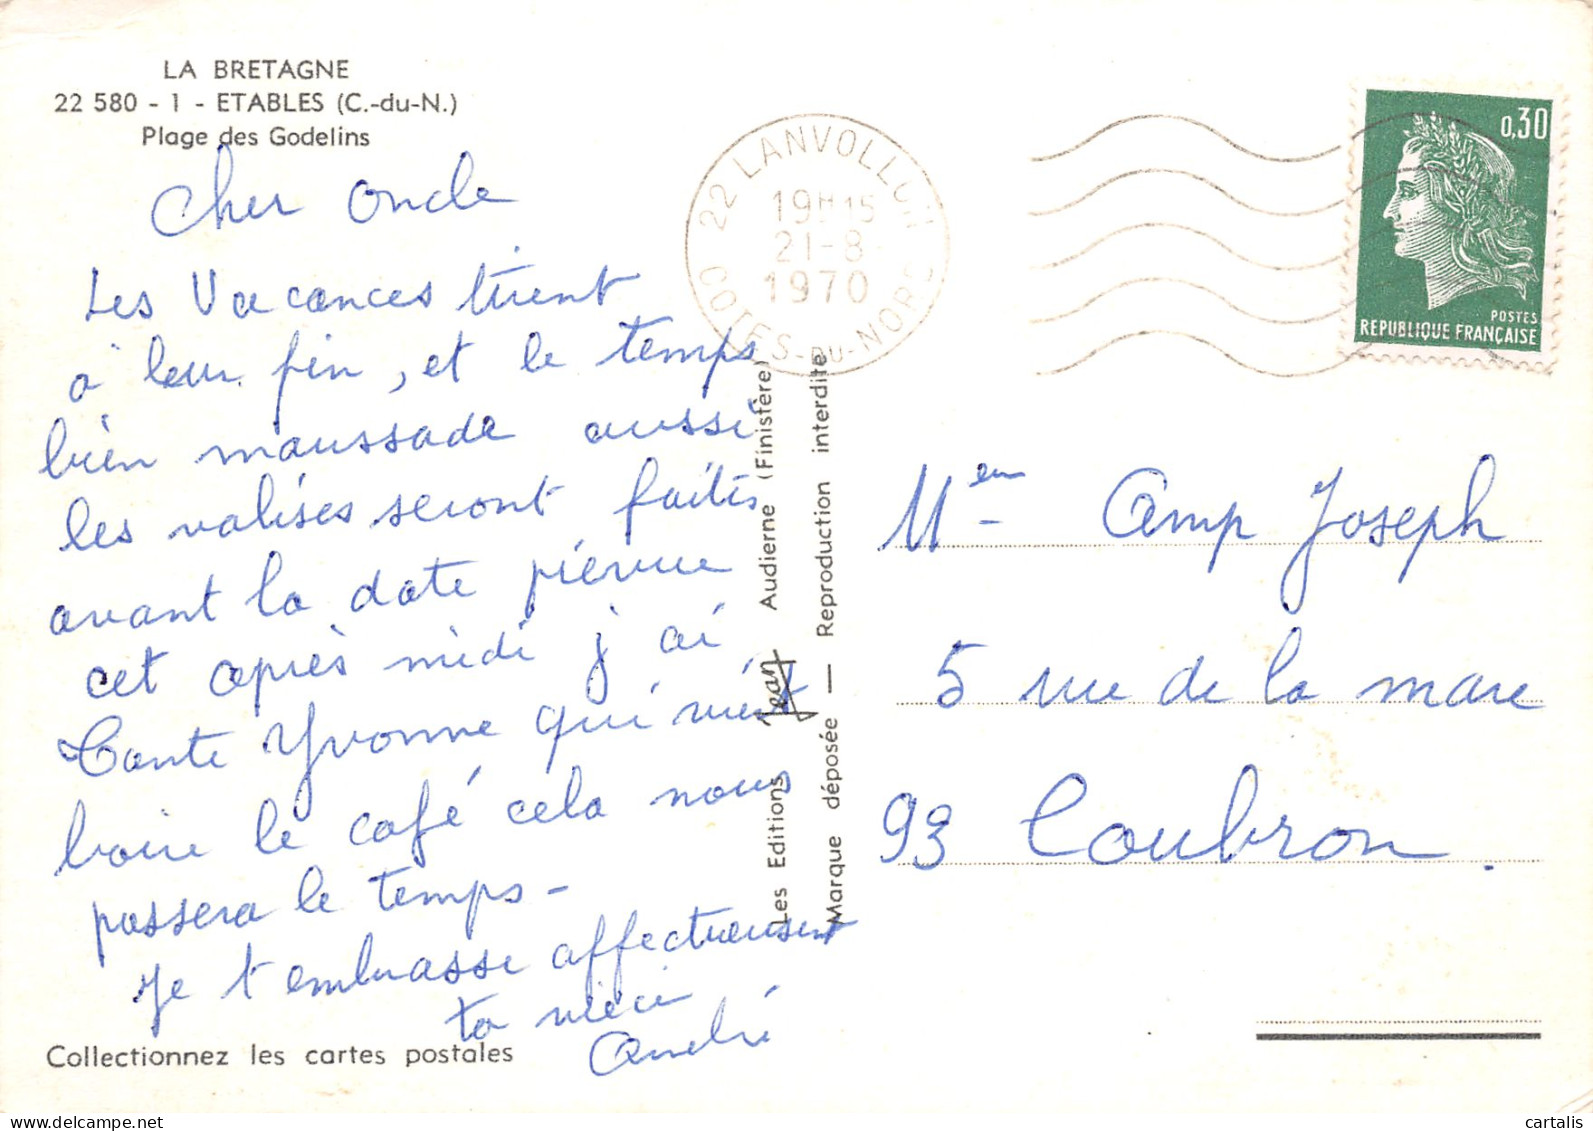 LA BRETAGNE
22 580 - 1 - ETABLES (C.-du-N.)
Plage des Godelins
Cher Oncle
Les Vacances tirent
à leur fin, et le temps
bien maussade aussi
les valises seront faites
avant la date prévue
cet après midi j'ai
Tante Yvonne qui vient
boire le café cela nous
passera le temps -
Je t'embrasse affectueusement
ta nièce
André
Collectionnez les cartes postales
22 LANVOLLON
19H15
21-8
1970
COTES-DU-NORD
Les Editions Jean Audierne (Finistère)
Marque déposée — Reproduction interdite
0,30
POSTES
REPUBLIQUE FRANÇAISE
Camp Joseph
5 rue de la mare
93 Coubron.
www.delcampe.net
cartalis